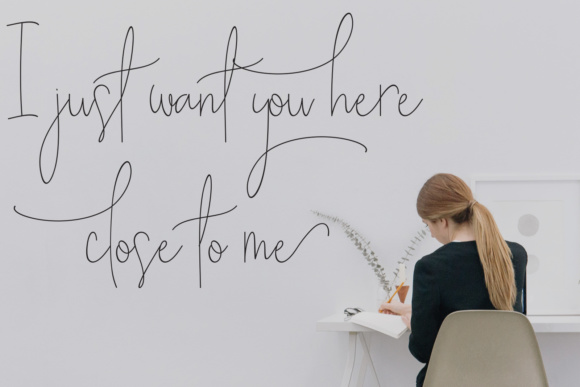 I just want you here
close to me